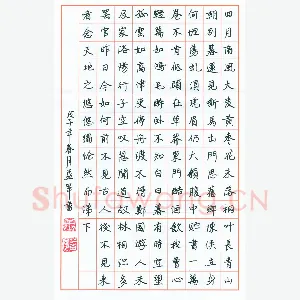 四月南风大麦黄枣花未落桐叶长青山
朝别暮还见嘶马出门思旧乡陈侯立身
何坦荡虬须虎眉仍大颡腹中贮书一万
卷不肯低头在草莽东门酤酒饮我曹心
轻万事如鸿毛醉卧不知白日暮有时空望
孤云高津口停舟渡不得鄭國游人未
及家洛阳行子空叹息闻道故林相识多
罢官昨日今如何前不见古人後不見来
者念天地之悠悠獨怆然而涕下
戊子年春月